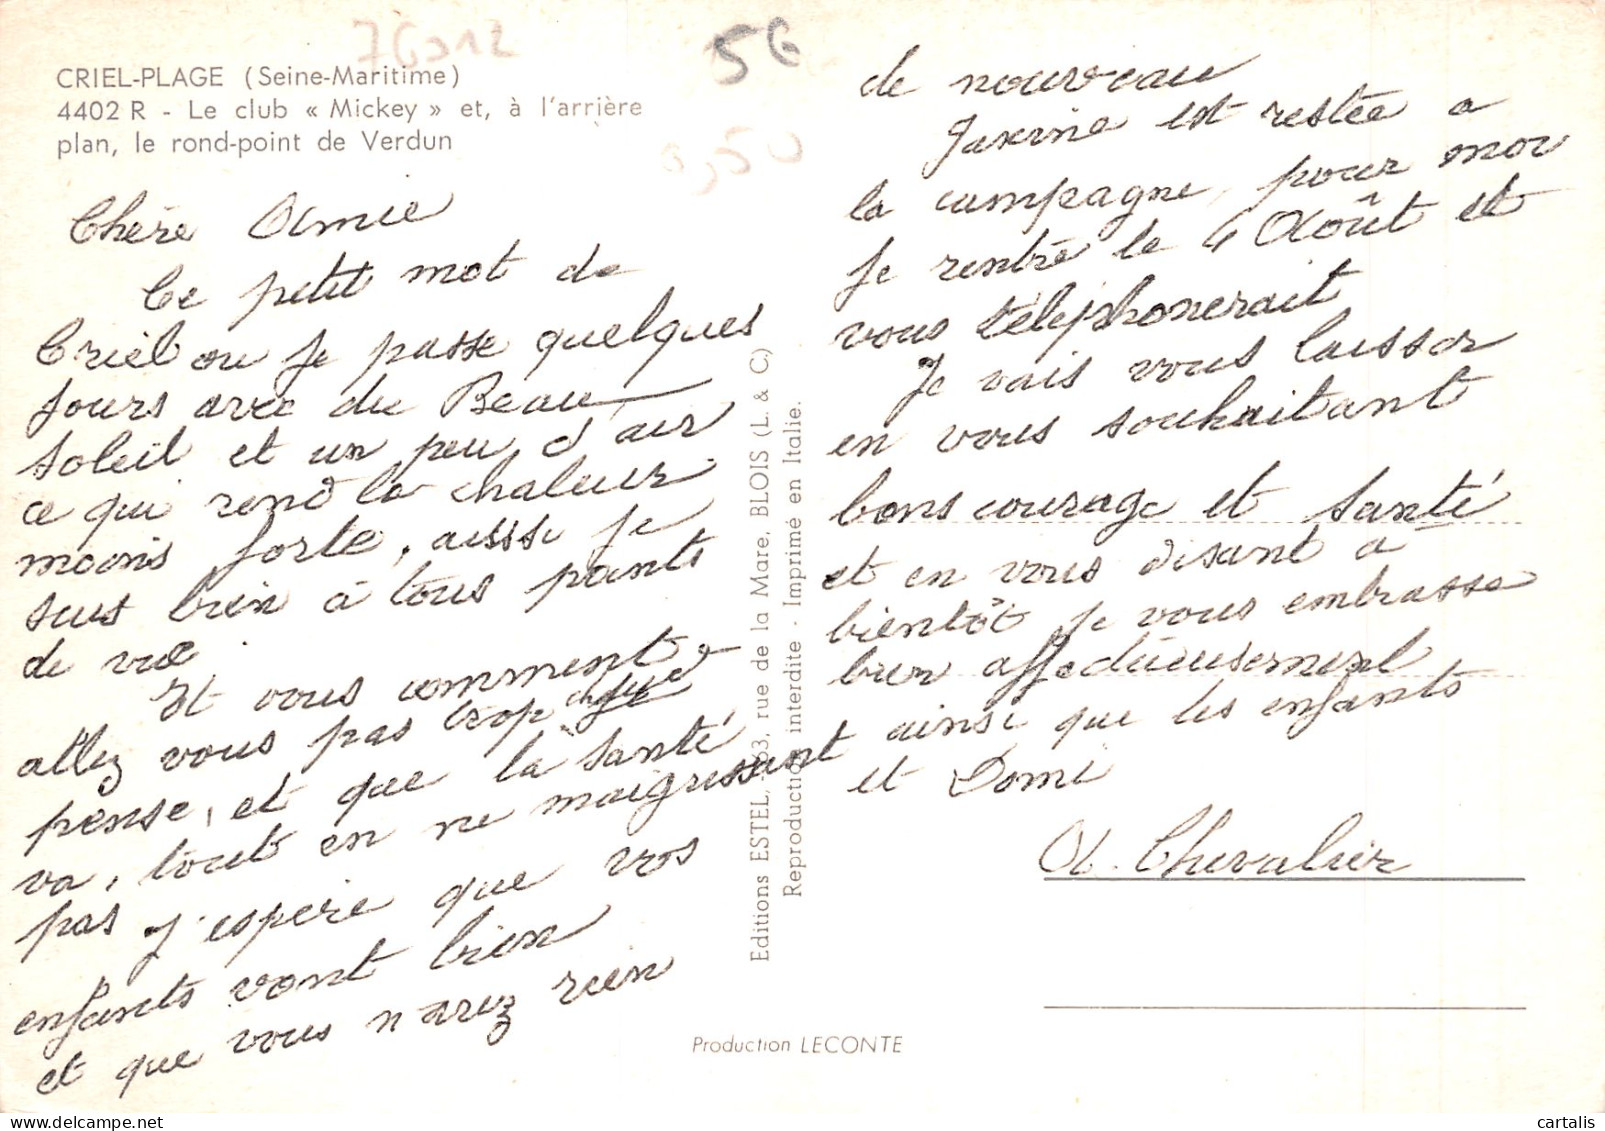 76312
56
0,50
CRIEL-PLAGE (Seine-Maritime)
4402 R - Le club « Mickey » et, à l'arrière
plan, le rond-point de Verdun
Chère Amie
Ce petit mot de
Criel ou je passe quelques
jours avec du Beau
soleil et un peu d'air
ce qui rend la chaleur
moins forte, aussi je
suis bien à tous points
de vue
Et vous comment
allez vous pas trop
pense, et que la santé
va, tout en ne maigrissant
pas j'espère que vos
enfants vont bien
et que vous n'avez rien
Editions ESTEL, 63, rue de la Mare, BLOIS (L. & C.)
Reproduction interdite - Imprimé en Italie.
Production LECONTE
de nouveau
est restée a
la campagne, pour moi
je rentre le 4 Août et
vous téléphonerait
Je vais vous laisser
en vous souhaitant
bons courage et santé
et en vous disant à
bientôt je vous embrasse
bien affectueusement
ainsi que les enfants
et Domi
A. Chevalier
cartalis